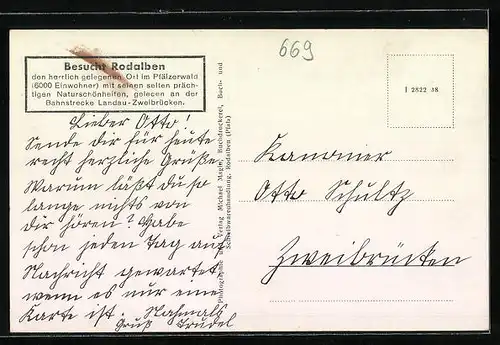 669
Besucht Rodalben
den herrlich gelegenen Ort im Pfälzerwald
(6000 Einwohner) mit seinen selten präch-
tigen Naturschönheiten, gelegen an der
Bahnstrecke Landau-Zweibrücken.
Lieber Otto!
Sende dir für heute
recht herzliche Grüße.
Warum läßt du so
lange nichts von
dir hören? Habe
schon jeden Tag auf
Nachricht gewartet
wenn es nur eine
Karte ist. Nochmals
Gruß Trudel
Photographie und Verlag Michael Magin, Buchdruckerei, Buch- und
Schreibwarenhandlung, Rodalben (Pfalz)
I 2822 38
Kanonier
Otto Schultz
Zweibrücken